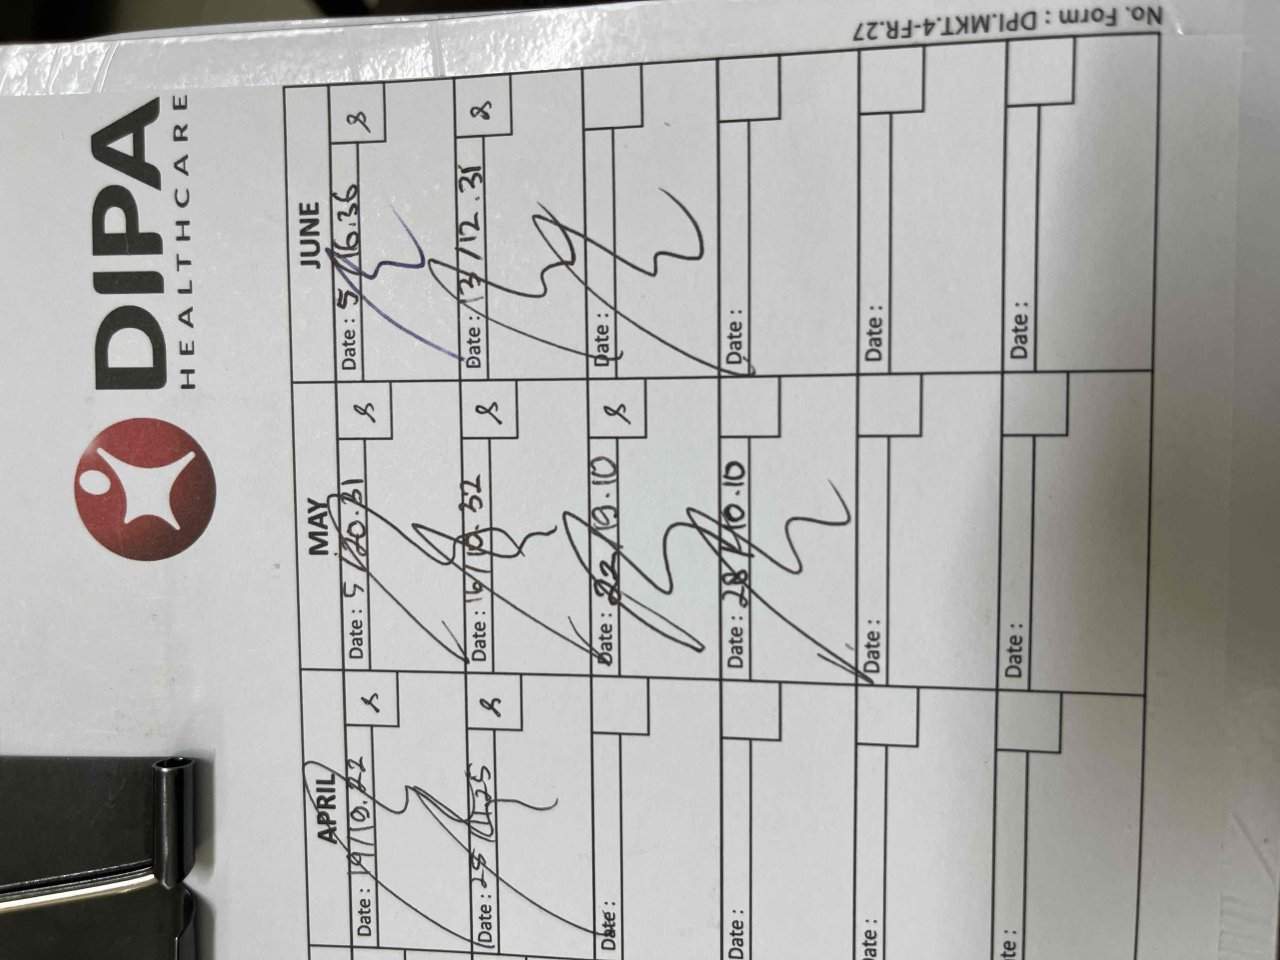 DIPA
HEALTHCARE
No. Form : DPI.MKT.4-FR.27
APRIL MAY JUNE
Date : 19/19.22 8 Date : 5/20.31 8 Date : 5/16.36 8
Date : 28 8 Date : 16/10.52 8 Date : 13/12.31 8
Date : Date : 22/19.10 8 Date :
Date : Date : 28/10.10 Date :
Date : Date : Date :
Date : Date : Date :